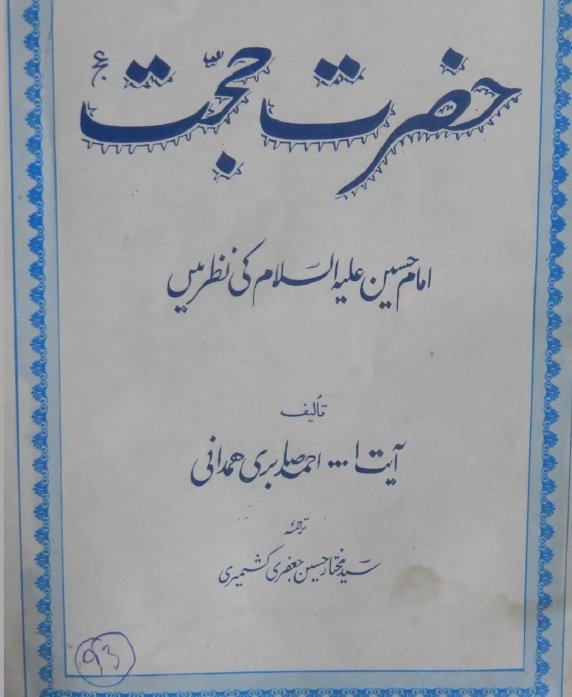 حضرت حجّت عج
امام حسین علیہ السلام کی نظر میں
تألیف
آیت ا... احمد صابری همدانی
ترجمہ
سید مختار حسین جعفری کشمیری
93